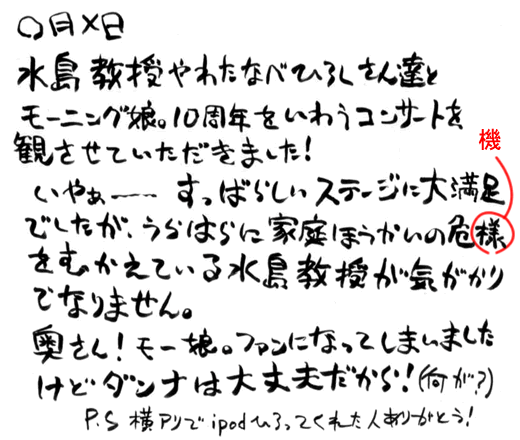 〇月×日
水島教授やわたなべひろしさん達と
モーニング娘。10周年をいわうコンサートを
観させていただきました!
機
いやぁー── すっばらしいステージに大満足
でしたが、うらはらに家庭ほうかいの危様
をむかえている水島教授が気がかり
でなりません。
奥さん!モー娘。ファンになってしまいました
けどダンナは大丈夫だから!(何が?)
P.S 横アリでipodひろってくれた人ありがとう!